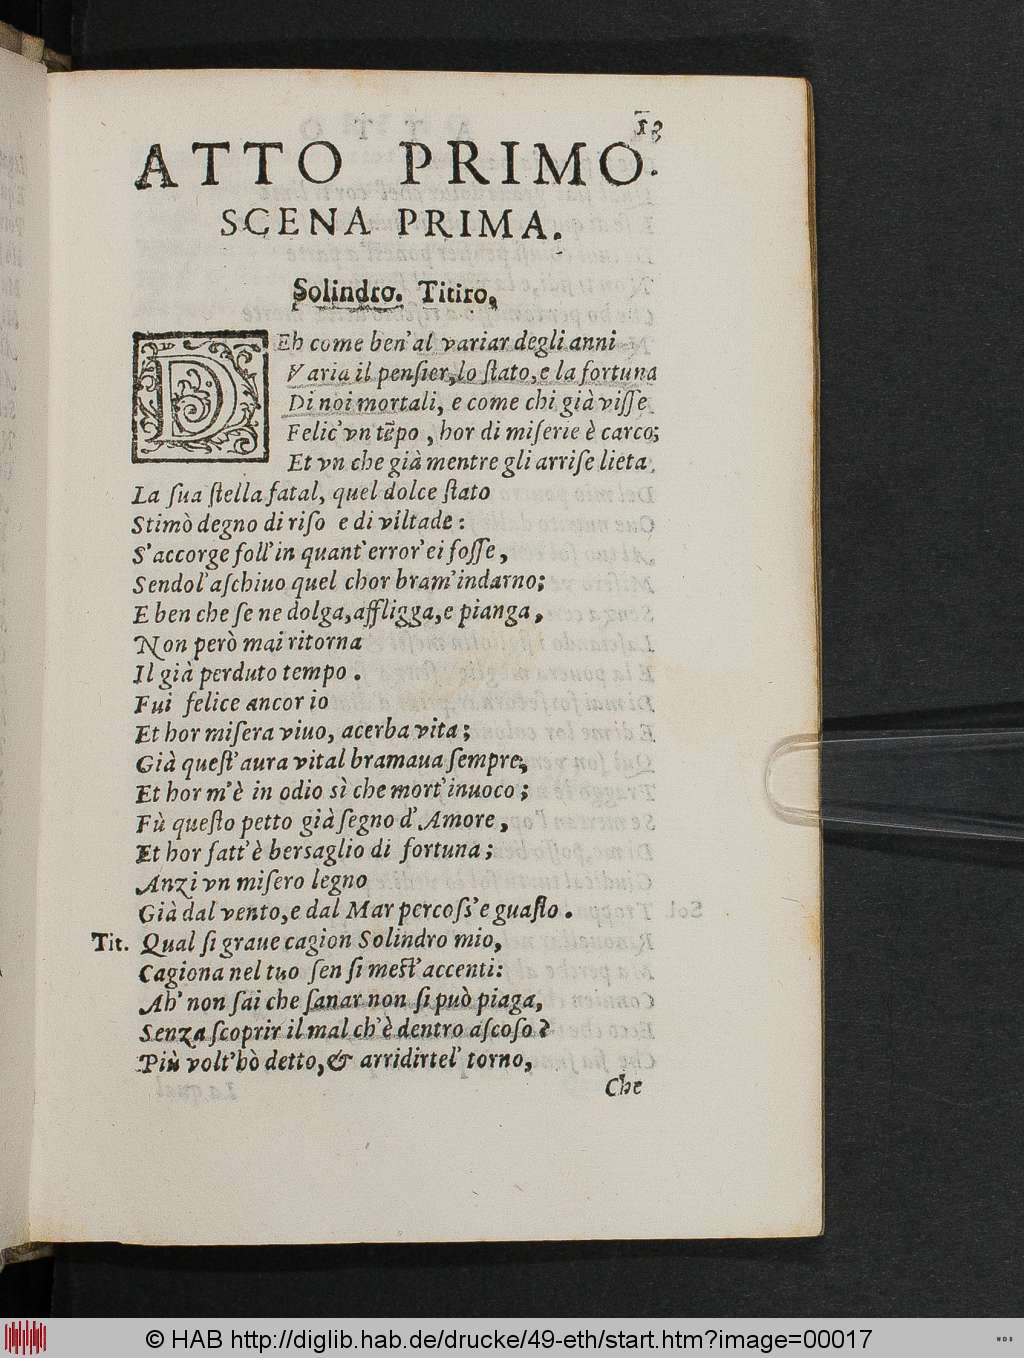 13
ATTO PRIMO.
SCENA PRIMA.
Solindro. Titiro.
DEh come ben'al variar degli anni
Varia il penſier, lo ſtato, e la fortuna
Di noi mortali, e come chi già viſſe
Felic'vn tẽpo, hor di miſerie è carco;
Et vn che già mentre gli arriſe lieta
La ſua ſtella fatal, quel dolce ſtato
Stimò degno di riſo e di viltade:
S'accorge foll'in quant'error'ei foſſe,
Sendol'aſchiuo quel chor bram'indarno;
E ben che ſe ne dolga, affligga, e pianga,
Non però mai ritorna
Il già perduto tempo.
Fui felice ancor io
Et hor miſera viuo, acerba vita;
Già queſt'aura vital bramaua ſempre,
Et hor m'è in odio sì che mort'inuoco;
Fù queſto petto già ſegno d'Amore,
Et hor fatt'è berſaglio di fortuna;
Anzi vn miſero legno
Già dal vento, e dal Mar percoſs'e guaſto.
Tit. Qual ſi graue cagion Solindro mio,
Cagiona nel tuo ſen ſi meſt'accenti:
Ah' non ſai che ſanar non ſi può piaga,
Senza ſcoprir il mal ch'è dentro aſcoſo?
Più volt'hò detto, & arridirtel' torno,
Che
© HAB http://diglib.hab.de/drucke/49-eth/start.htm?image=00017